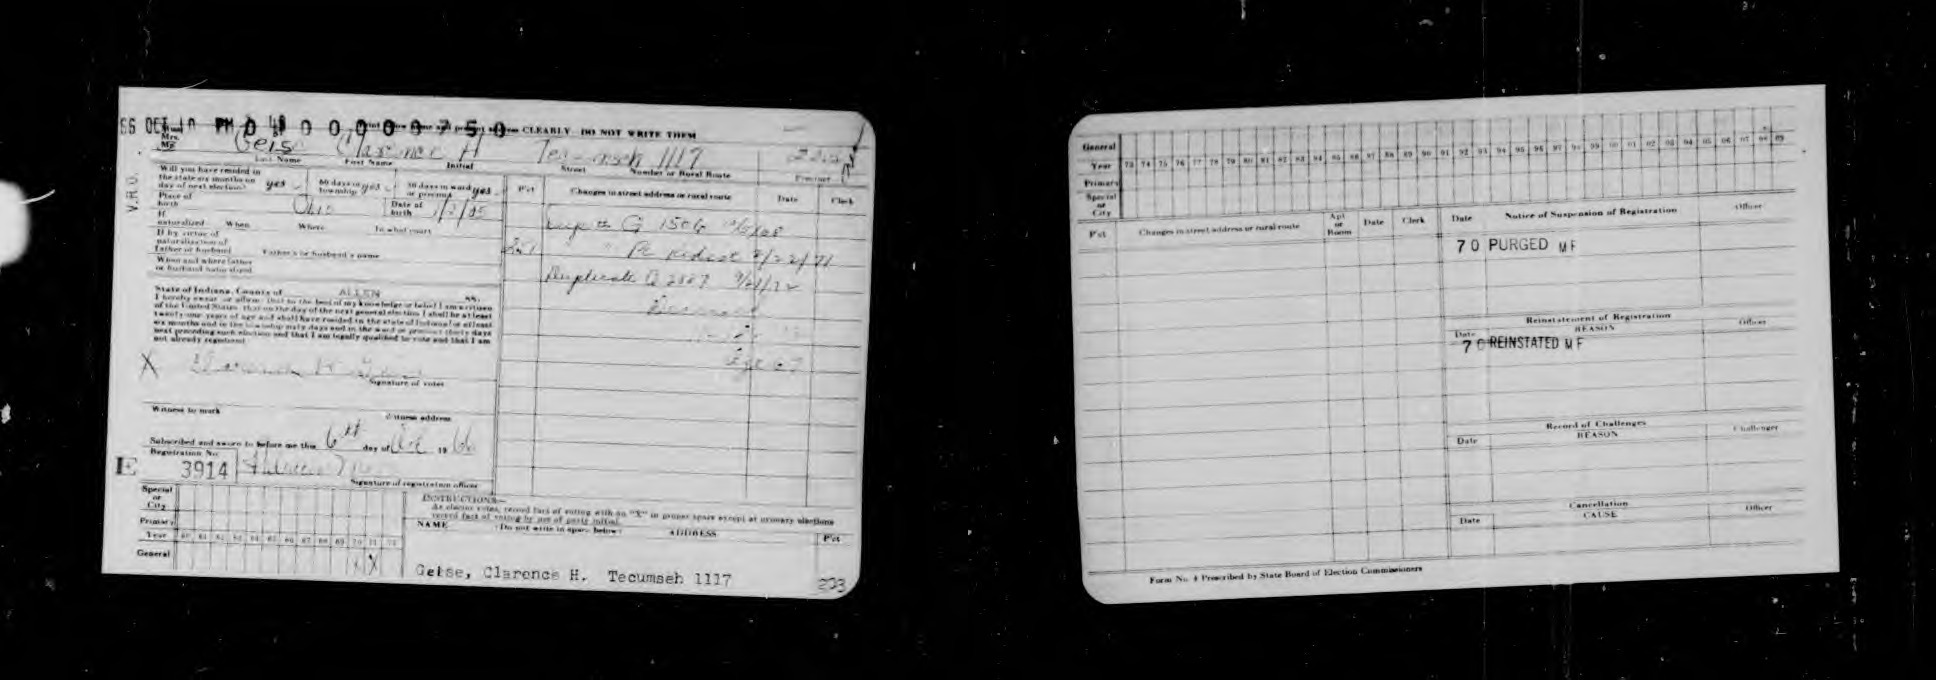 66 OCT 10 PM 0 0 0 0 0 0 7 5 0 CLEARLY DO NOT WRITE THEM
Mrs.
Mr. Geise Clarence H Tecumseh 1117
Last Name First Name Initial Street Number or Rural Route Precinct
V.R.U.
Will you have resided in the state six months on day of next election? yes 60 days in township yes 30 days in ward or precinct yes
P'ct Changes in street address or rural route Date Clerk
Place of birth Ohio Date of birth 1/2/05
If naturalized When Where In what court
Dup to G 1506
If by virtue of naturalization of father or husband Father's or husband's name
Pc Redist 8/22/71
When and where father or husband naturalized
Duplicate G 2887 9/21/72
State of Indiana, County of ALLEN ss.
I hereby swear or affirm that to the best of my knowledge or belief I am a citizen
of the United States, that on the day of the next general election I shall be at least
twenty-one years of age and shall have resided in the state of Indiana for at least
six months and in the township sixty days and in the ward or precinct thirty days
next preceding such election and that I am legally qualified to vote and that I am
not already registered.
Deceased
X Clarence H Geise
Signature of voter
Witness to mark Witness address
Subscribed and sworn to before me this 6th day of Oct 1966
Registration No.
E 3914
Signature of registration officer
Special or City
Primary
Year 60 61 62 63 64 65 66 67 68 69 70 71 72
General X X
INSTRUCTIONS—
As elector votes, record fact of voting with an "X" in proper space except at primary elections
record fact of voting by use of party initial.
NAME (Do not write in space below) ADDRESS P'ct
Geise, Clarence H. Tecumseh 1117 223
General
Year 73 74 75 76 77 78 79 80 81 82 83 84 85 86 87 88 89 90 91 92 93 94 95 96 97 98 99 00 01 02 03 04 05 06 07 08 09
Primary
Special or City
P'ct Changes in street address or rural route Apt or Room Date Clerk
Date Notice of Suspension of Registration Officer
70 PURGED MF
Reinstatement of Registration
Date REASON Officer
70 REINSTATED MF
Record of Challenges
Date REASON Challenger
Cancellation
Date CAUSE Officer
Form No. 4 Prescribed by State Board of Election Commissioners